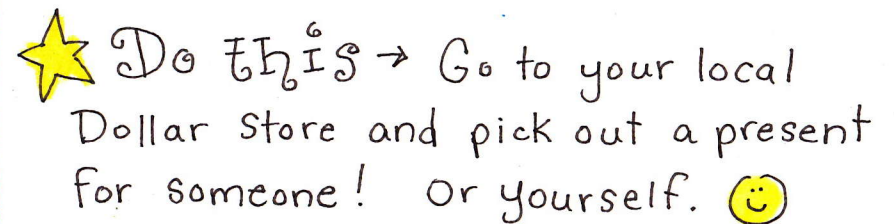 Do this → Go to your local
Dollar Store and pick out a present
for someone! Or yourself.